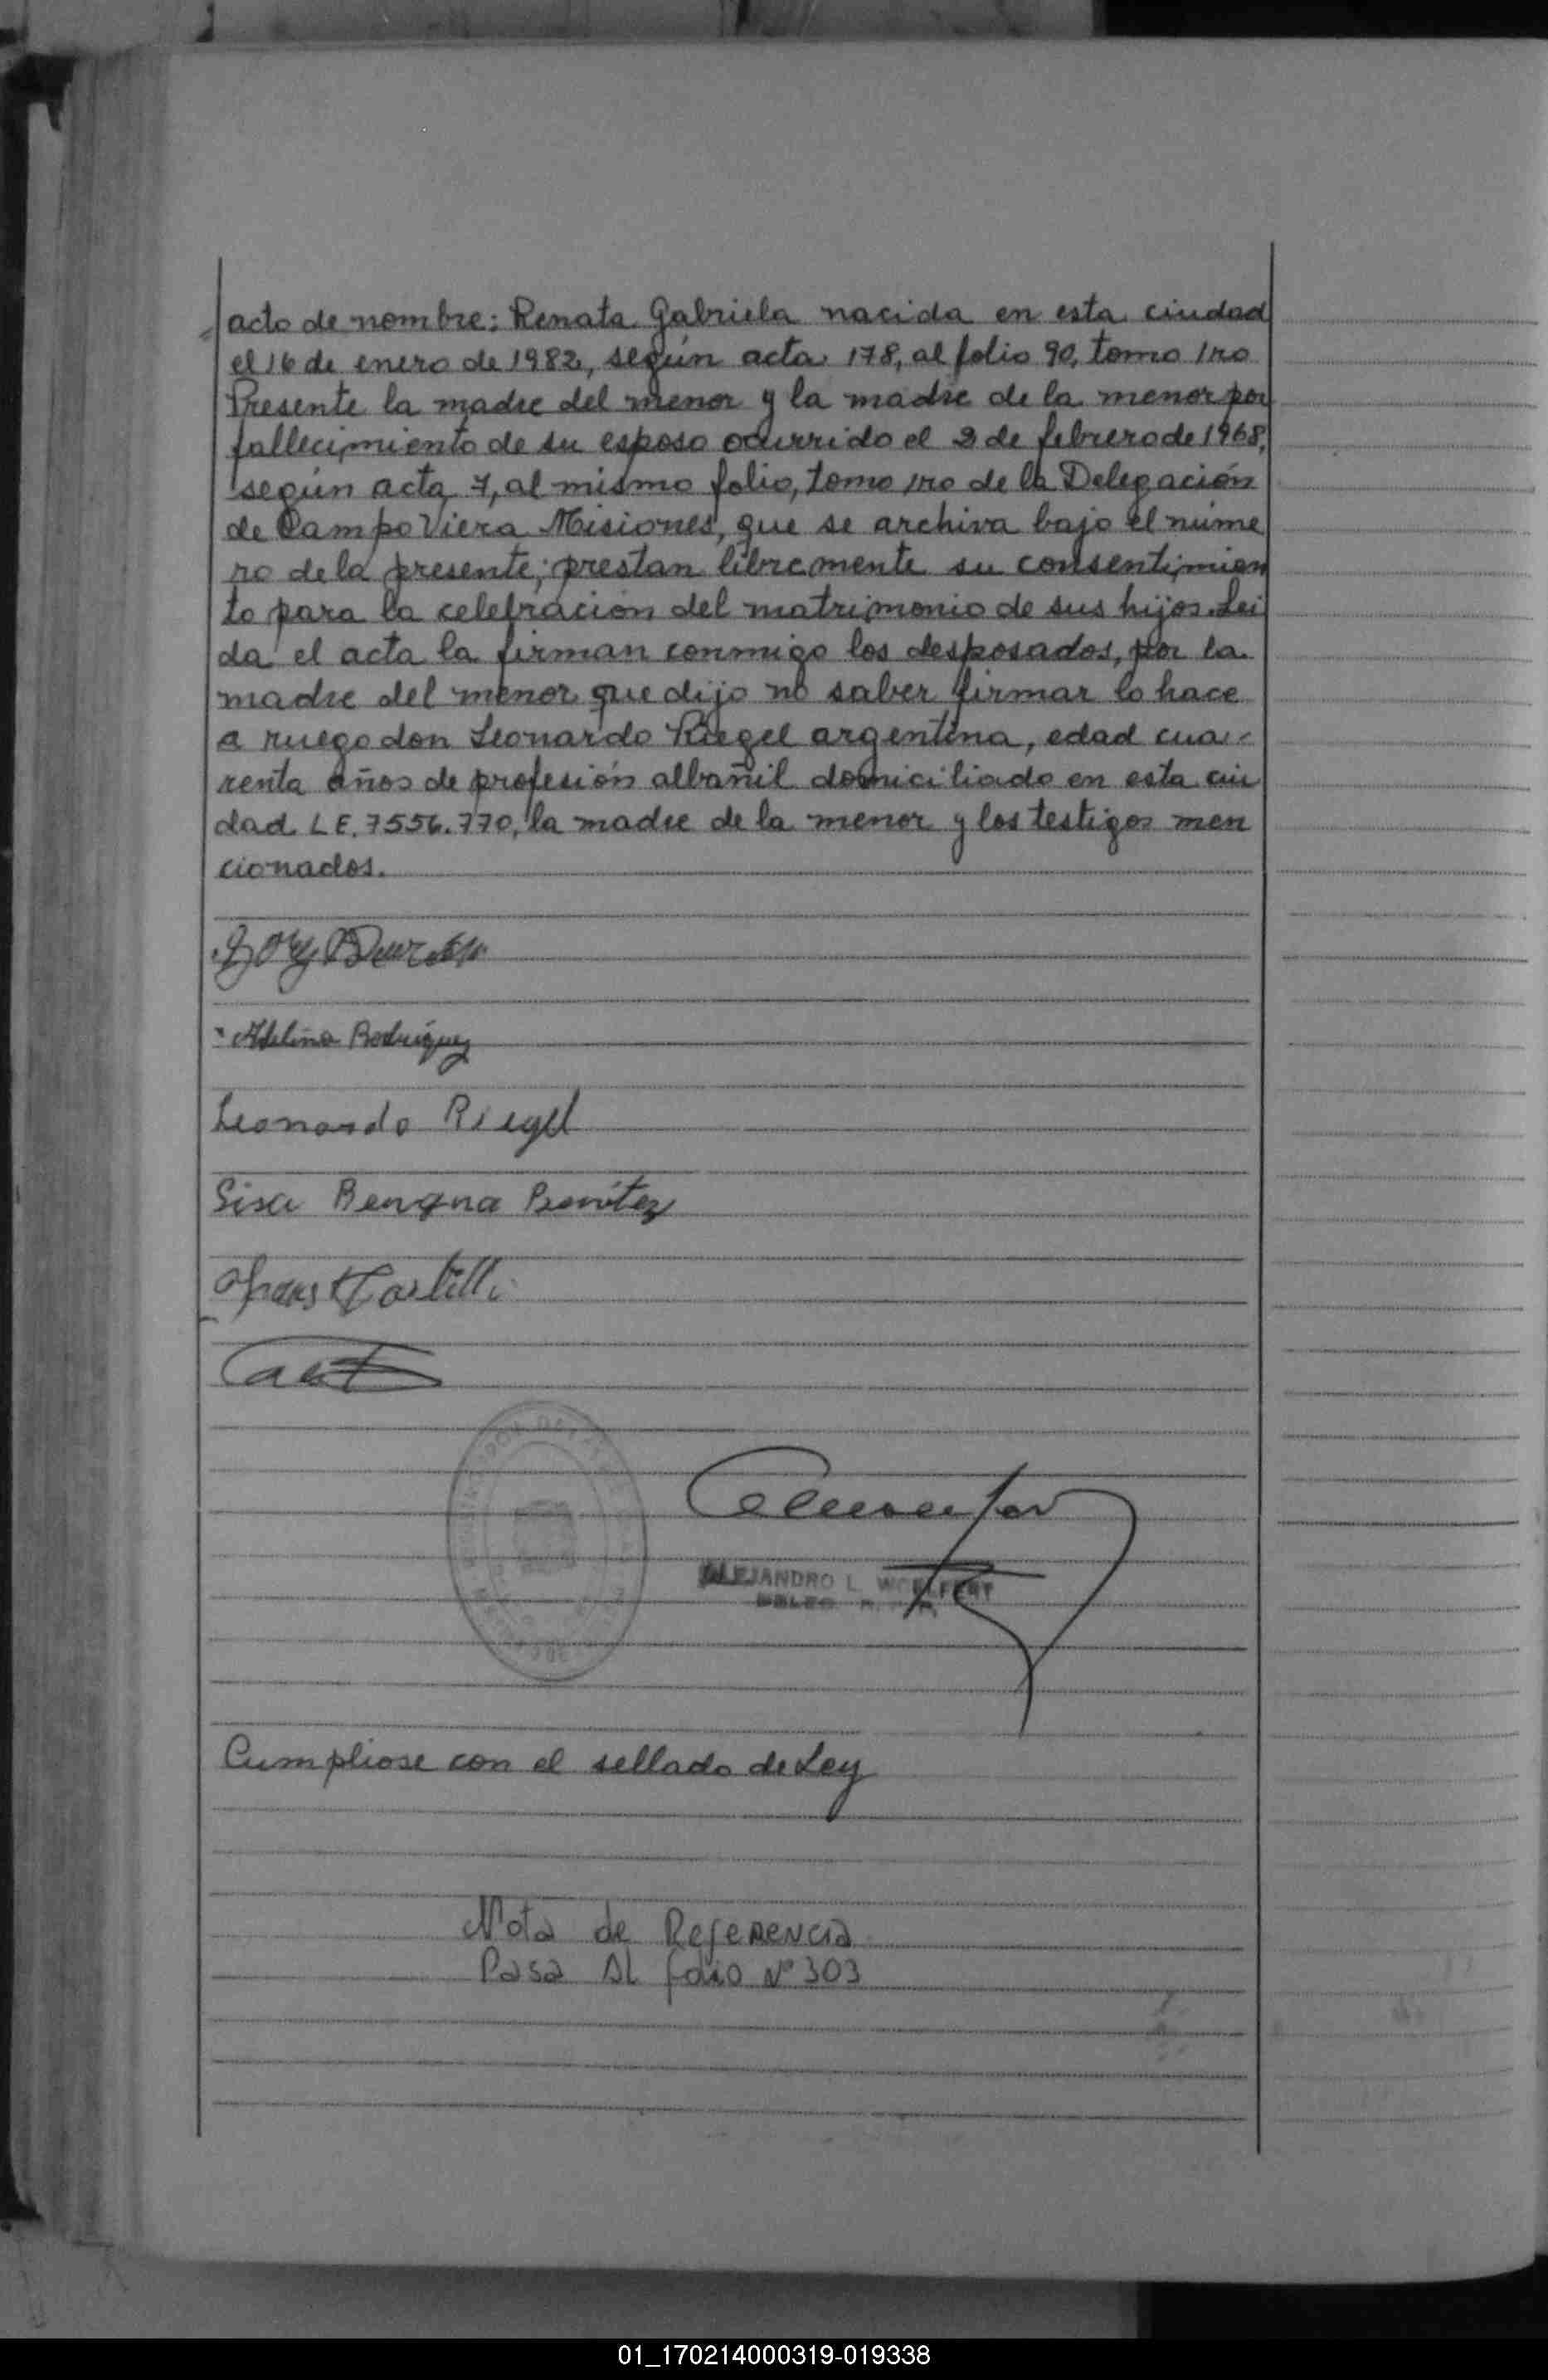 acto de nombre: Renata Gabriela nacida en esta ciudad
el 16 de enero de 1982, según acta 178, al folio 90, tomo 1ro
Presente la madre del menor y la madre de la menor por
fallecimiento de su esposo ocurrido el 2 de febrero de 1968,
según acta 7, al mismo folio, tomo 1ro de la Delegación
de Campo Viera Misiones, que se archiva bajo el núme
ro de la presente; prestan libremente su consentimien
to para la celebración del matrimonio de sus hijos. Lei
da el acta la firman conmigo los desposados, por la
madre del menor que dijo no saber firmar lo hace
a ruego don Leonardo Riegel argentina, edad cua-
renta años de profesión albañil domiciliado en esta ciu
dad L E. 7556.770, la madre de la menor y los testigos men
cionados.
Adelina Rodríguez
Leonardo Riegel
Sisa Benigna Benítez
ALEJANDRO L. WOELFERT
Cumpliose con el sellado de Ley
Nota de Referencia
Pasa al folio Nº 303
01_170214000319-019338